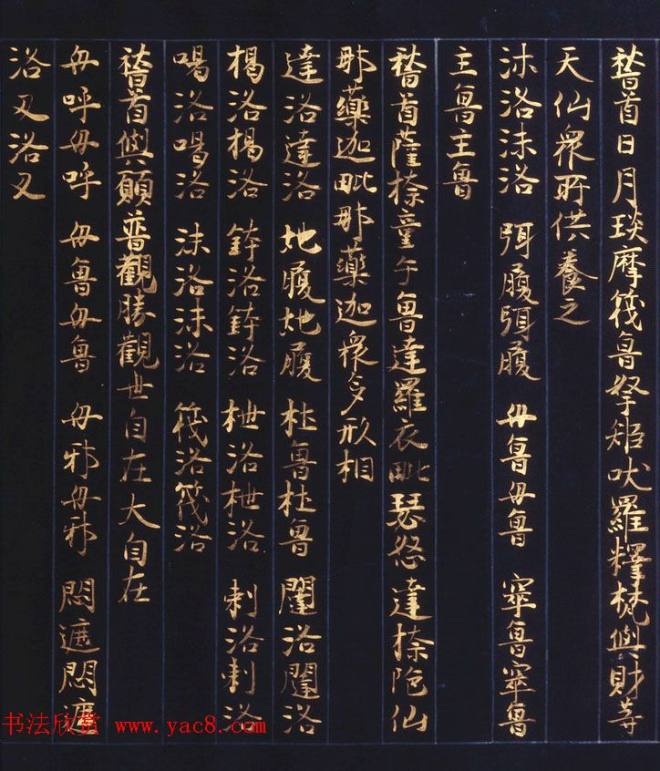 稽首日月琰摩筏魯拏矩吠羅釋梵與財等
天仙眾所供養之
沫洛沫洛 弭履弭履 毋魯毋魯 窣魯窣魯
主魯主魯
稽首薩捺童子魯達羅衣毗瑟怒達捺陀仙
那藥迦毗那藥迦眾多形相
達洛達洛 地履地履 杜魯杜魯 闥洛闥洛
揭洛揭洛 鉢洛鉢洛 枻洛枻洛 刺洛刺洛
喝洛喝洛 沫洛沫洛 筏洛筏洛
稽首與願普觀勝觀世自在大自在
毋呼毋呼 毋魯毋魯 毋邪毋邪 悶遮悶遮
洛叉洛叉
书法欣赏 www.yac8.com